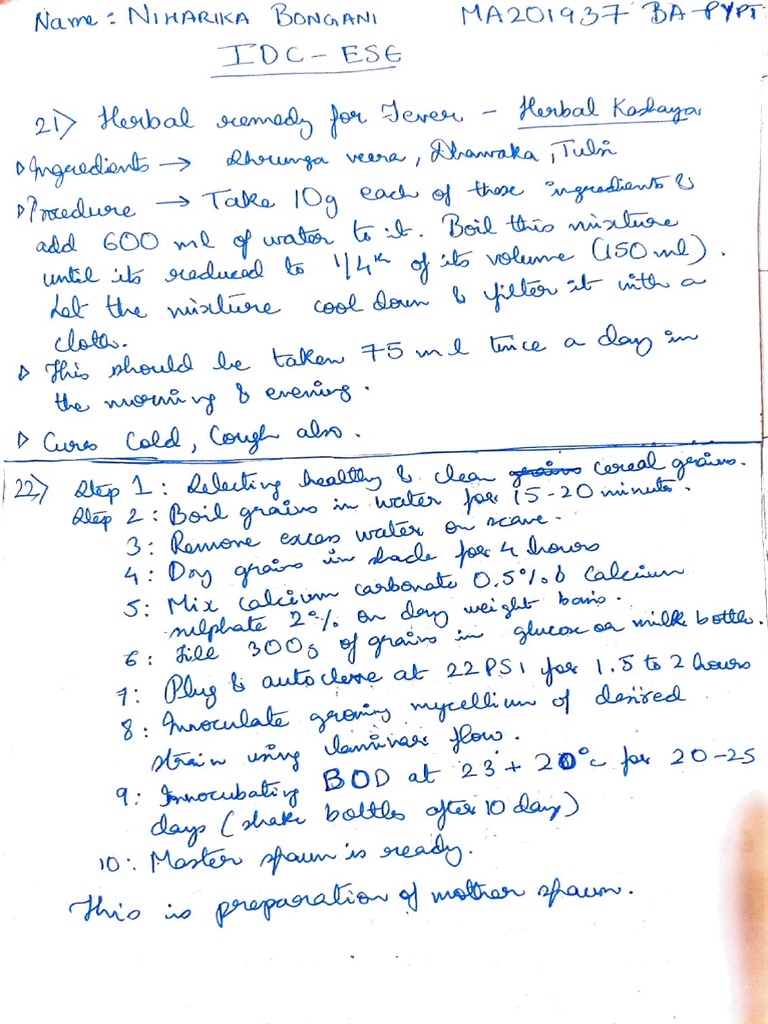 Name: NIHARIKA BONGANI MA201937 BA-PYPT
IDC-ESE
21) Herbal remedy for Fever - Herbal Kashaya
Ingredients → Dhrunga veera, Dhawaka, Tulsi
Procedure → Take 10g each of these ingredients &
add 600 ml of water to it. Boil this mixture
until its reduced to 1/4th of its volume (150 ml).
Let the mixture cool down & filter it with a
cloth.
This should be taken 75 ml twice a day in
the morning & evening.
Cures Cold, Cough also.
22) Step 1: Selecting healthy & clean grains cereal grains.
Step 2: Boil grains in water for 15-20 minutes.
3: Remove excess water on scave.
4: Dry grains in shade for 4 hours
5: Mix calcium carbonate 0.5% & calcium
sulphate 2% on dry weight basis.
6: Fill 300g of grains in glucose or milk bottle.
7: Plug & autoclave at 22 PSI for 1.5 to 2 hours
8: Innoculate growing mycellium of desired
strain using laminar flow.
9: Innocubating BOD at 23 + 20°c for 20-25
days (shake bottles after 10 day)
10: Master spawn is ready.
This is preparation of mother spawn.